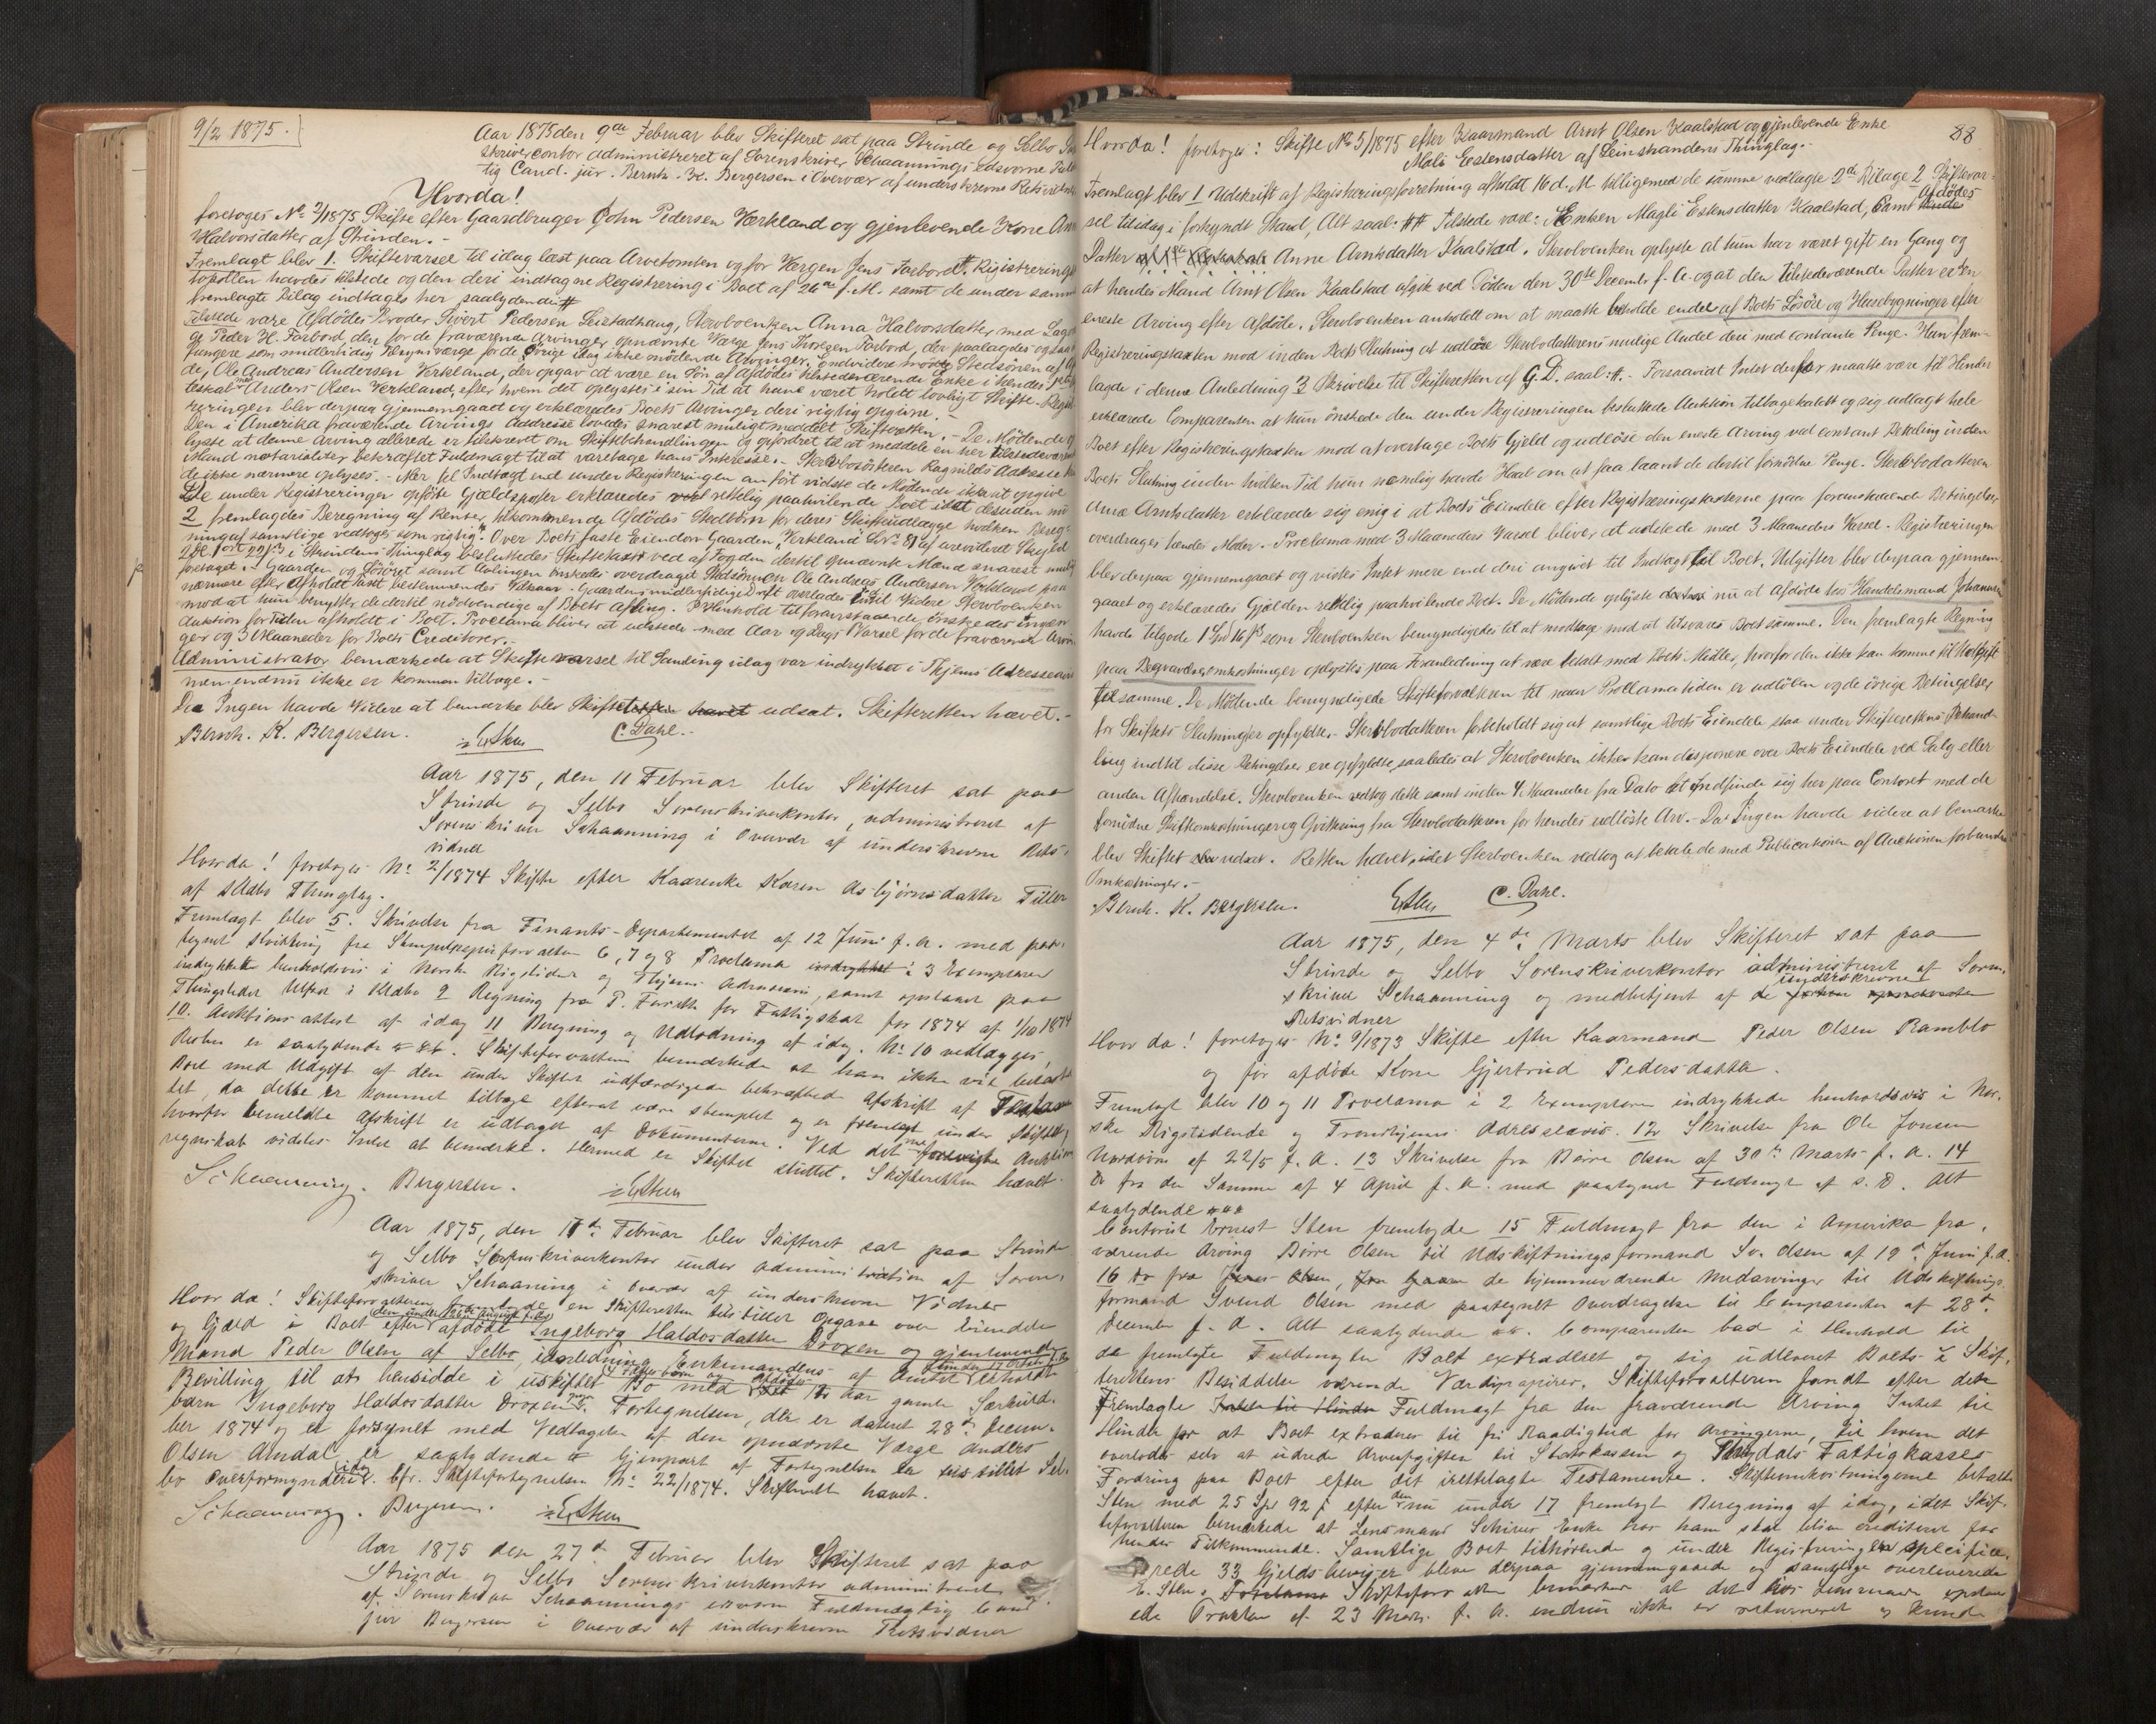 9/2 1875.
Aar 1875 den 9de Februar blev Skifteret sat paa Strinde og Selbo
skrivercontor administreret af Sorenskriver Schaannings edsvorne
tig Cand. jur. Bernh. K. Bergersen i Overvær af underskrevne Retsvidner
Hvorda!
foretoges No 2/1875 Skifte efter Gaardbruger John Pedersen Værkland og gjenlevende Kone
Halvorsdatter af Strinden.-
Fremlagt blev 1. Skiftevarsel til idag læst paa Arvetomten og for Værgen Jens Forbord. Registrerings
tokollen havdes tilstede og den deri indtagne Registrering i Boet af 26de f. M. samt de under samme
fremlagte Bilag indtages her saalydende #
Tilstede vare Afdødes Broder Sivert Pedersen Leistadhaug, Stervboenken Anna Halvorsdatter med
ge Peder H. Forbord, den for de fraværende Arvinger opnævnte Værge Jens Thoresen Forbord, der paalagdes og
fungere som midlertidig Værge for de øvrige idag ikke mødende Arvinger. Endvidere mødte Stedsønnen af
de, Ole Andreas Andersen Værkland, der opgav at være en Søn af Afdødes tilstedeværende Enke i hendes
teskab med Anders Olsen Værkland, efter hvem det oplystes i sin Tid at have været holdt lovligt Skifte. Regist
reringen blev derpaa gjennemgaaet og erklæredes Boets Arvinger deri rigtig opgivne.-
Den i Amerika fraværende Arvings Addresse lovedes snarest muligt meddelt Skifteretten. - De Mødende
lyste at denne Arving allerede er tilskrevet om Skiftebehandlingen og opfordret til at meddele en her tilstedeværende
Mand notarialiter bekræftet Fuldmagt til at varetage hans Interesse. - Stervbosøsteren Ragnilds Adresse
de ikke nærmere oplyses. - Mer til Indtægt end under Registreringen anført vidste de Mødende ikke at opgive
De under Registreringen opførte Gjældsposter erklæredes rettelig paahvilende Boet idet desuden nu
2 fremlagdes Beregning af Renter, tilkommende Afdødes Stedbørn for deres Skifteudlægge hvilken Bereg-
ning af samtlige vedtoges som rigtig. Over Boets faste Eiendom Gaarden Værkland
i Strindens Thinglag besluttedes Skiftetaxt ved af Fogden dertil opnævnte Mænd snarest
foretaget.- Gaarden og Løsøret samt Avlingen ønskedes overdraget Stedsønnen Ole Andreas Andersen Værkland paa
nærmere efter afholdt Taxt bestemmendes Vilkaar. Gaardens midlertidige Drift overlades indtil Videre Stervboenken
mod at hun benytter de dertil nødvendige af Boets Avling. I Henhold til foranstaaende ønskedes ingen
Auktion for Tiden afholdt i Boet. Proclama bliver at udstede med Aar og Dags Varsel for de fraværende
ger og 3 Maaneder for Boets Creditorer.-
Administrator bemærkede at Skiftevarsel til Samling idag var indrykket i Thjems Adresseavis
men endnu ikke er kommen tilbage.-
Da Ingen havde Videre at bemærke blev Skiftet udsat. Skifteretten hævet.-
Bernh. K. Bergersen. C. Dahl.-
Aar 1875, den 11 Februar blev Skifteret sat paa
Strinde og Selbo Sorenskriverkontor, administreret af
Sorenskriver Schaanning i Overvær af underskrevne Rets-
vidner
Hvorda! foretoges No 2/1874 Skifte efter Kaarenke Karen Asbjørnsdatter Tiller
af Klæbo Thinglag.
Fremlagt blev 5. Skrivelse fra Finants-Departementet af 12 Juni f. a. med paa-
tegnet Kvittring fra Stempelpapirforvalteren 6, 7 og 8 Proclama i 3 Exemplarer
indrykkede henholdsvis i Norske Rigstidende og Thjems Adresseavis, samt opslaaet paa
Thingstedet i Klæbo 9 Regning fra P. Farseth for Fattigskat for 1874 af 1/10 1874
10. Auktionsattest af idag 11 Beregning og Udlodning af idag. No 10 vedlægges,
Resten er saalydende. Skifteforvalteren bemærkede at han ikke vil belaste
Boet med Udgift af den under Skiftet udfærdigede bekræftede Afskrift af
tet, da dette er kommet tilbage efterat være stemplet og er fremlagt under Skiftet,
hvorfor bemeldte Afskrift er udtaget af Dokumenterne. Ved det Auktions
regnskab vidstes Intet at bemærke. Hermed er Skiftet sluttet. Skifteretten hævet.
Schaanning. Bergersen.
Aar 1875, den Februar blev Skifteret sat paa Strinde
og Selbo Sorenskriverkontor under Administration af Soren-
skriver Schaanning i Overvær af underskrevne Vidner
Hvor da! Skifteforvalteren en Skifteretten tilstillet Opgave over Eiendele
og Gjæld i Boet efter afdøde Ingeborg Haldosdatter Droxen og gjenlevende
Mand Peder Olsen af Selbo, i Anledning Enkemandens af Amtet erholdte
Bevilling til at hensidde i uskiftet Bo med Aar gamle Særkuld-
barn Ingeborg Haldosdatter Droxen. Fortegnelsen, der er dateret 28de Decem-
ber 1874 og er forsynet med Vedtagelse af den opnævnte Værge Anders
Olsen Amdal, er saalydende # Gjenpart af Fortegnelsen er tilstillet Sel-
bo Overformynderi idag. Cfr. Skiftefortegnelsen No 22/1874. Skifteretten hævet.
Schaanning. Bergersen.
Aar 1875 den 27de Februar blev Skifteret sat paa
Strinde og Selbo Sorenskriverkontor administreret
af Sorenskriver Schaannings edsvorne Fuldmægtig Cand.
jur Bergersen i Overvær af underskrevne Retsvidner
88
Hvorda! foretoges: Skifte No 5/1875 efter Kaarmand Arnt Olsen Kaalstad og gjenlevende Enke
Mali Estensdatter af Leinstrandens Thinglag.-
Fremlagt blev 1 Udskrift af Registreringsforretning afholdt 16 d. M. tilligemed de samme vedlagte 2de Bilage 2 Skiftevar-
sel til idag i forkyndt Stand, Alt saal: ## Tilstede vare: Enken Magli Estensdatter Kaalstad, samt Afdødes
Datter Anne Arntsdatter Kaalstad. Stervboenken oplyste at hun har været gift en Gang og
at hendes Mand Arnt Olsen Kaalstad afgik ved Døden den 30te Decembr f. A. og at den tilstedeværende Datter er den
eneste Arving efter Afdøde. Stervboenken anholdt om at maatte beholde endel af Boets Løsøre og Husebygninger efter
Registreringstaxten mod inden Boets Slutning at udløse Stervbodatterens mulige Andel deri med contante Penge. Hun frem-
lagde i denne Anledning 3 Skrivelse til Skifteretten af G. D. saal: #.- Forsaavidt Intet derfor maatte være til Hinder
erklærede Comparenten at hun ønskede den under Registreringen besluttede Auktion tilbagekaldt og sig udlagt hele
Boet efter Registreringstaxten mod at overtage Boets Gjæld og udløse den eneste Arving ved contant Betaling inden
Boets Slutning inden hvilken Tid hun nemlig havde Haab om at faa laant de dertil fornødne Penge. Stervbodatteren
Anne Arntsdatter erklærede sig enig i at Boets Eiendele efter Registreringstaxterne paa foranstaaende Betingelser
overdrages hendes Moder. Proclama med 3 Maaneders Varsel bliver at udstede med 3 Maaneders Varsel. Registreringen
blev derpaa gjennemgaaet og vidstes Intet mere end deri angivet til Indtægt for Boet. Udgifter blev derpaa gjennem-
gaaet og erklæredes Gjælden rettelig paahvilende Boet. De Mødende oplyste nu at Afdøde hos Handelsmand Johannes
havde tilgode 1 Spd 16 s som Stervboenken bemyndigedes til at modtage mod at tilsvare Boet samme. Den fremlagte Regning
paa Begravelsesomkostninger oplystes paa Foranledning at være betalt med Boets Midler, hvorfor den ikke kan komme til Udgift
for samme. De Mødende bemyndigede Skifteforvalteren til naar Proclamatiden er udløben og de øvrige Betingelser
for Skiftets Slutning er opfyldte. Stervbodatteren forbeholdt sig at samtlige Boets Eiendele staa under Skifterettens Behand-
ling indtil disse Betingelser ere opfyldte, saaledes at Stervboenken ikke kan disponere over Boets Eiendele ved Salg eller
anden Afhændelse. Stervboenken vedtog dette samt inden 4 Maaneder fra Dato at indfinde sig her paa Contoret med de
fornødne Skifteomkostninger og Qvittering fra Stervbodatteren for hendes udløste Arv.- Da Ingen havde videre at bemærke
blev Skiftet udsat. Retten hævet, idet Stervboenken vedtog at betale de med Publicationen af Auctionen forbundne
Omkostninger.-
Bernh. K. Bergersen. C. Dahl.
Aar 1875, den 4de Marts blev Skifteret sat paa
Strinde og Selbo Sorenskriverkontor administreret af Soren-
skriver Schaanning og medbetjent af de underskrevne
Retsvidner
Hvor da! foretoges No 9/1873 Skifte efter Kaarmand Peder Olsen Ramblo
og før afdøde Kone Gjertrud Pedersdatter.
Fremlagt blev 10 og 11 Proclama i 2 Exemplarer indrykkede henholdsvis i Nor-
ske Rigstidende og Trondhjems Adresseavis. 12 Skrivelse fra Ole Jonsen
af 22/5 f. A. 13 Skrivelse fra Børre Olsen af 30te Marts f. A. 14
Do fra den Samme af 4 April f. A. med paategnet Fuldmagt af s. D. Alt
saalydende
Contorist Ernest Sten fremlagde 15 Fuldmagt fra den i Amerika fra-
værende Arving Børre Olsen til Udskiftningsformand Sv. Olsen af 12te Juni f. A.
16 Do fra de hjemmeværende Medarvinger til Udskiftnings-
formand Svend Olsen med paategnet Overdragelse til Comparenten af 28de
December f. A. Alt saalydende. Comparenten bad i Henhold til
de fremlagte Fuldmagter Boet extraderet og sig udleveret Boets i Skif-
terettens Besiddelse værende Værdipapirer. Skifteforvalteren fandt efter den
fremlagte Fuldmagt fra den fraværende Arving Intet til
Hinder for at Boet extraderes til fri Raadighed for Arvingerne, til hvem det
overlodes selv at udrede Arveafgiften til Statskassen og Tydals Fattigkasses
Fordring paa Boet efter det irettelagte Testamente. Skifteomkostningerne betalte
Sten med 25 Spd 92 s efter den nu under 17 fremlagt Beregning af idag, idet Skif-
teforvalteren bemærkede at Lensmand Schives Enke hos ham skal blive crediteret for
hendes Tilkommende. Samtlige Boet tilhørende og under Registreringen specifice-
rede 33 Gjeldsbeviser bleve derpaa gjennemgaaede og samtlige overleverede
E. Sten. Skifteforvalteren bemærker at det hos Lensmanden
ede Proclama af 23 Marts f. A. endnu ikke er returneret og kunde